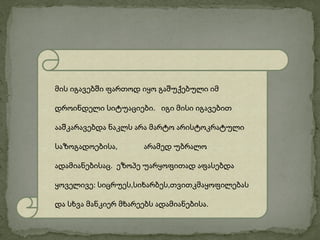 მის იგავებში ფართოდ იყო გაშუქებული იმ
დროინდელი სიტუაციები. იგი მისი იგავებით
ააშკარავებდა ნაკლს არა მარტო არისტოკრატული
საზოგადოებისა, არამედ უბრალო
ადამიანებისაც. ეზოპე უარყოფითად აფასებდა
ყოველივე: სიცრუეს,სიხარბეს,თვითკმაყოფილებას
და სხვა მანკიერ მხარეებს ადამიანებისა.